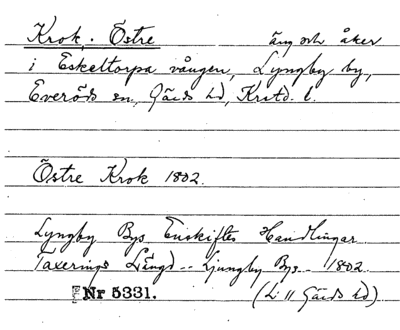 Krok, Östre äng och åker
i Eskeltorpa vången, Lyngby by,
Everöds sn, Gärds hd, Kristd. l.
Östre Krok 1802.
Lyngby Bys Enskiftes Handlingar
Taxerings Längd - Ljungby By - 1802
Nr 5331. (L: 11 Gärds hd)